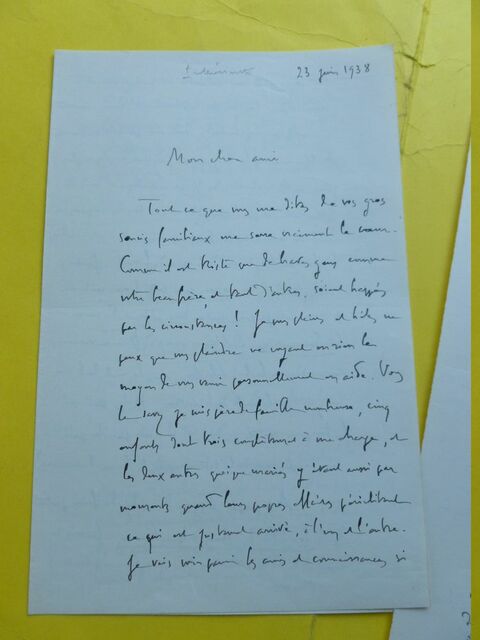 23 juin 1938
Mon cher ami
Tout ce que vous me dites de vos gros
soucis familiaux me serre vraiment le cœur.
Comme il est triste que de braves gens comme
votre beau frère, et tant d'autres, soient happés
par les circonstances ! Je vous plains et hélas ne
peux que vous plaindre ne voyant en rien le
moyen de vous venir personnellement en aide. Vous
le savez je suis père de famille nombreuse, cinq
enfants dont trois complètement à ma charge, et
les deux autres quoique mariés y étant aussi par
moments quand leurs propres affaires périclitent
ce qui est justement arrivé, à l'un et l'autre.
Je vais voir parmi les amis et connaissances si